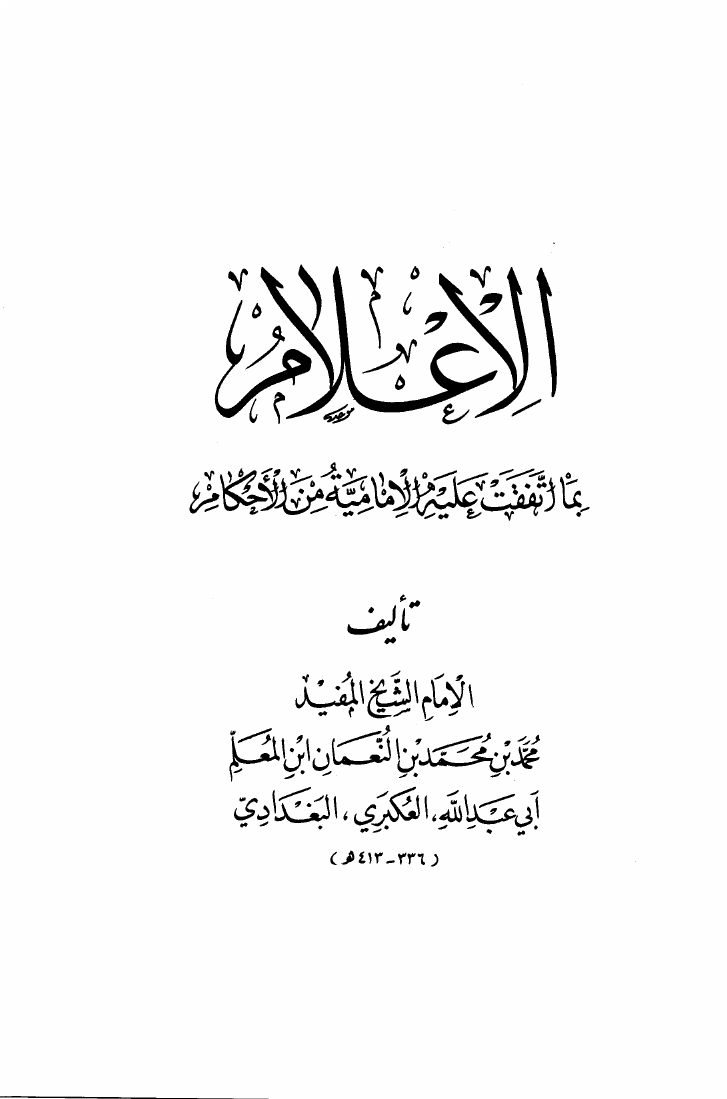 الإعلام
بما اتفقت عليه الإمامية من الأحكام
تأليف
الإمام الشيخ المفيد
محمد بن محمد بن النعمان ابن المعلم
أبي عبد الله، العكبري، البغدادي
(٣٣٦-٤١٣ هـ)